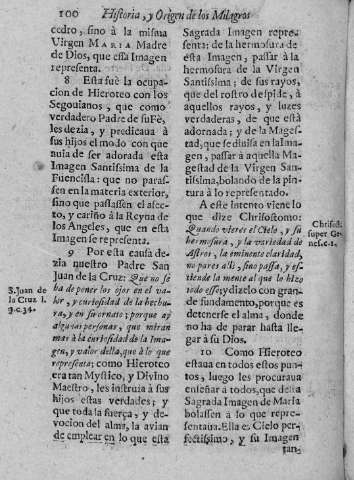 100 Historia, y Origen de los Milagros
cedro, sino à la misma
Virgen MARIA Madre
de Dios, que essa Imagen
representa.
8 Esta fuè la ocupa-
cion de Hieroteo con los
Segouianos, que como
verdadero Padre de su Fè,
les dezia, y predicaua à
sus hijos el modo con que
auia de ser adorada esta
Imagen Santissima de la
Fuencisla: que no paras-
sen en la materia exterior,
sino que passassen el afec-
to, y cariño à la Reyna de
los Angeles, que en esta
Imagen se representa.
9 Por esta causa de-
zia nuestro Padre San
Juan de la Cruz: Que no se
ha de poner los ojos en el va-
lor, y curiosidad de la hechu-
ra, y en su ornato; porque ay
algunas personas, que miran
mas à la curiosidad de la Ima-
gen, y valor della, que à lo que
representa; como Hieroteo
era tan Mystico, y Divino
Maestro, les instruìa à sus
hijos estas verdades; y
que toda la fuerça, y de-
vocion del alma, la avian
de emplear en lo que esta
S. Juan de
la Cruz l.
3. c. 34.
Sagrada Imagen repre-
senta: de la hermosura de
esta Imagen, passar à la
hermosura de la Virgen
Santissima; de sus rayos,
que del rostro despide, à
aquellos rayos, y luzes
verdaderas, de que està
adornada; y de la Mages-
tad, que se diuisa en la Ima-
gen, passar à aquella Ma-
gestad de la Virgen San-
tissima, bolando de la pin-
tura à lo representado.
A este intento viene lo
que dize Chrisostomo:
Quando vieres el Cielo, y su
hermosura, y la variedad de
Astros, la eminente claridad,
no pares alli, sino passa, y es-
tiende la mente al que lo hizo
todo esse; y dizelo con gran-
de fundamento, porque es
detenerse el alma, donde
no ha de parar hasta lle-
gar à su Dios.
10 Como Hieroteo
estaua en todos estos pun-
tos, luego les procuraua
enseñar à todos, que desta
Sagrada Imagen de Maria
bolassen à lo que repre-
sentaua. Ella es Cielo per-
fectissimo, y su Imagen
tan-
Chrisost.
super Ge-
nes. c. 1.